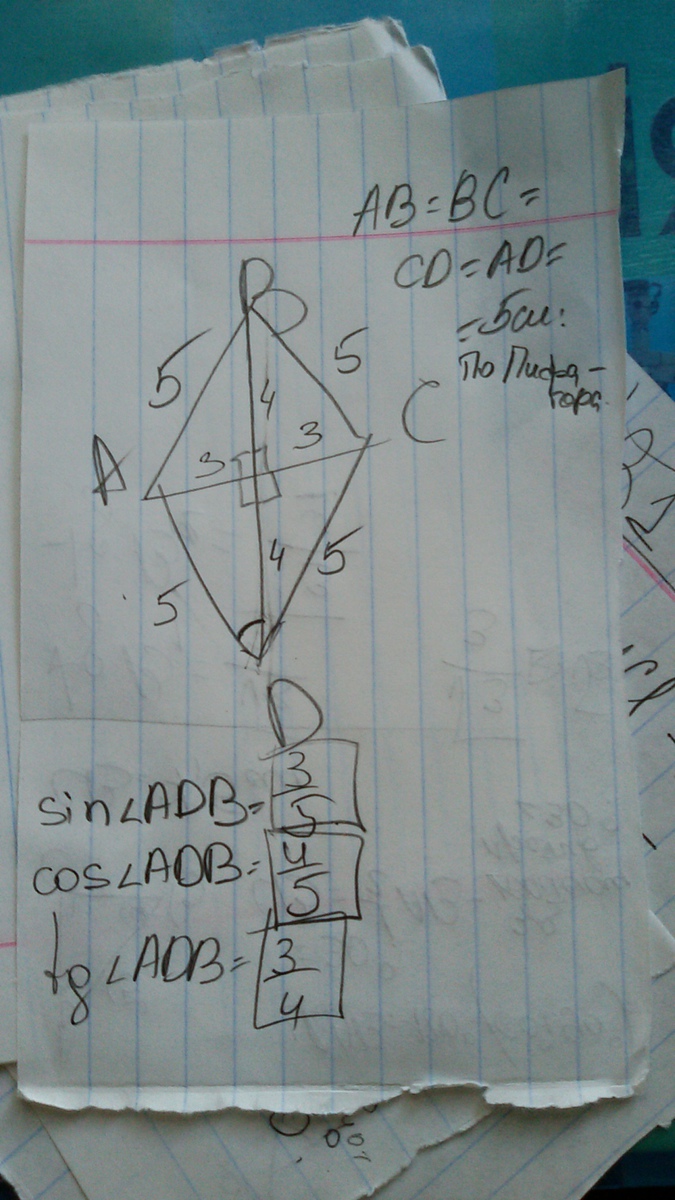 AB=BC=
CD=AD=
=5см.
По Пифа-
гора.
B
5
5
4
C
A
3
3
5
5
4
D
sin∠ADB=3/5
cos∠ADB=4/5
tg∠ADB=3/4